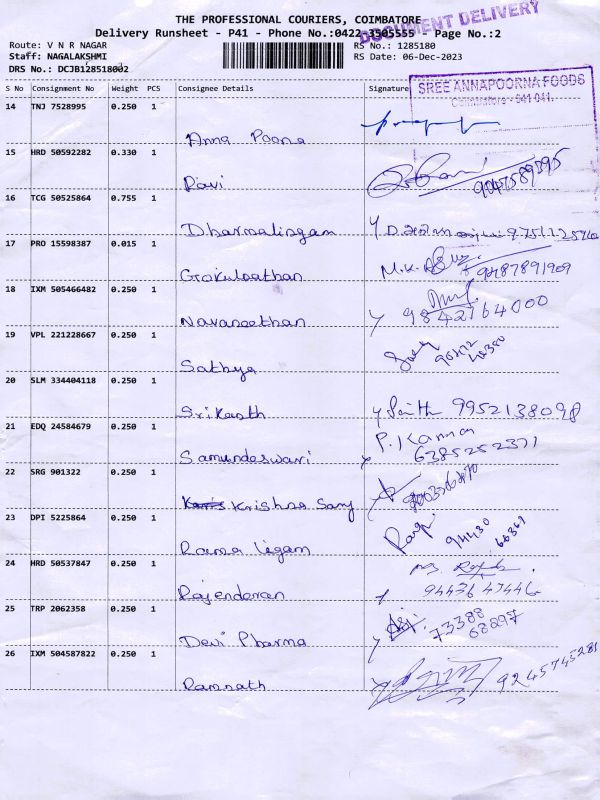 THE PROFESSIONAL COURIERS, COIMBATORE
DOCUMENT DELIVERY
Delivery Runsheet - P41 - Phone No.:0422-3505555 - Page No.:2
Route: V N R NAGAR
Staff: NAGALAKSHMI
DRS No.: DCJB128518002
RS No.: 1285180
RS Date: 06-Dec-2023
S No Consignment No Weight PCS Consignee Details Signature
SREE ANNAPOORNA FOODS
Coimbatore - 641 041.
14 TNJ 7528995 0.250 1
Anna Poona
15 HRD 50592282 0.330 1
Ravi 9047589595
16 TCG 50525864 0.755 1
Dharmalingam
17 PRO 15598387 0.015 1
Gokulnathan M.K. 9487891909
18 IXM 505466482 0.250 1
Navaneethan 9842164000
19 VPL 221228667 0.250 1
Sathya
20 SLM 334404118 0.250 1
Srikanth 9952138098
21 EDQ 24584679 0.250 1
Samundeswari P. Kannan 6385252371
22 SRG 901322 0.250 1
Krishna Samy
23 DPI 5225864 0.250 1
Rama ligam 94430 66361
24 HRD 50537847 0.250 1
Rajenderan 9443647446
25 TRP 2062358 0.250 1
Devi Pharma 73388 68897
26 IXM 504587822 0.250 1
Ramnath 9245745281